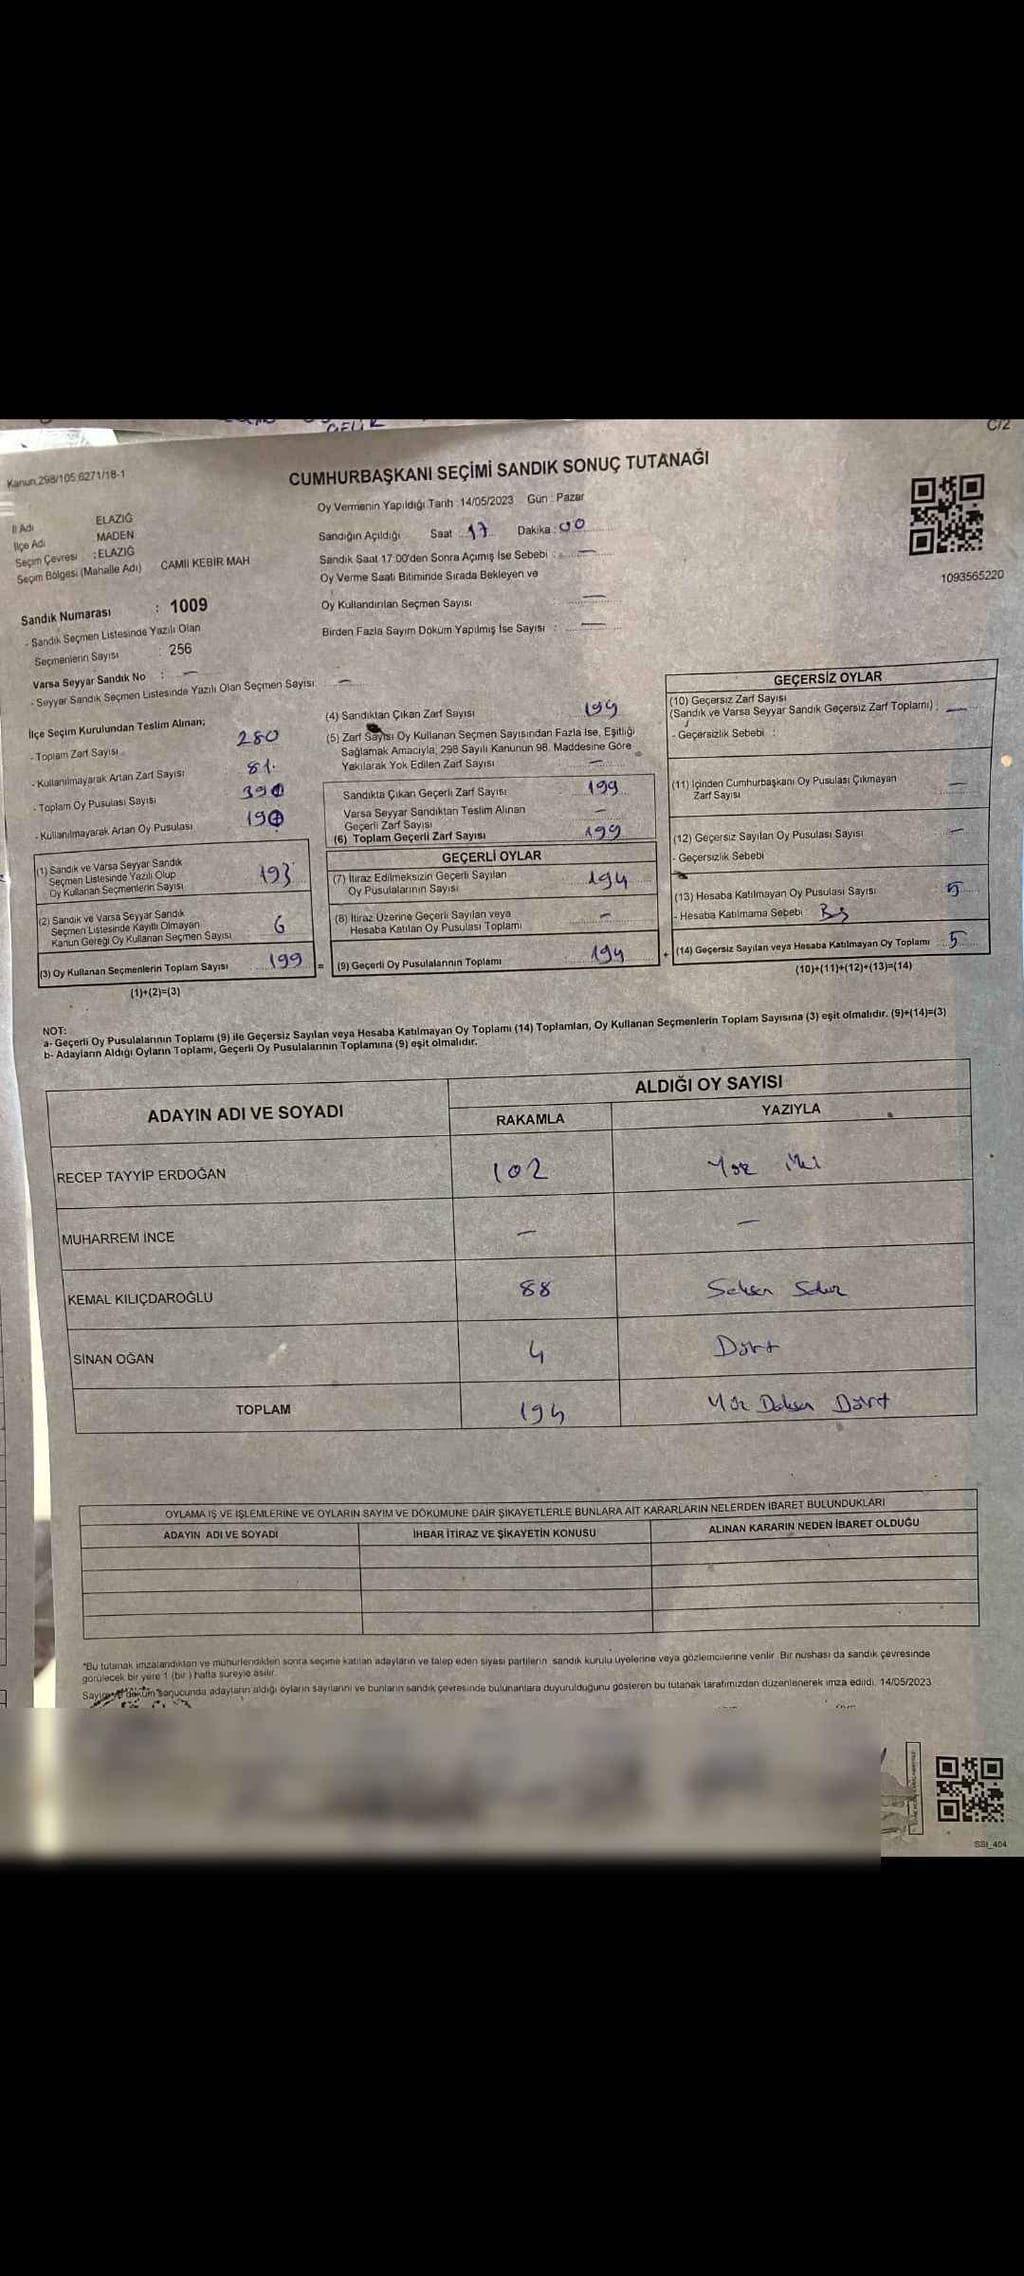 ÇELİK
C/2
Kanun.298/105 6271/18-1
CUMHURBAŞKANI SEÇİMİ SANDIK SONUÇ TUTANAĞI
İl Adı ELAZIĞ
İlçe Adı MADEN
Seçim Çevresi : ELAZIĞ
Seçim Bölgesi (Mahalle Adı) CAMİİ KEBİR MAH
Sandık Numarası : 1009
- Sandık Seçmen Listesinde Yazılı Olan
Seçmenlerin Sayısı : 256
Varsa Seyyar Sandık No : —
- Seyyar Sandık Seçmen Listesinde Yazılı Olan Seçmen Sayısı: —
Oy Vermenin Yapıldığı Tarih : 14/05/2023 Gün : Pazar
Sandığın Açıldığı Saat : 17 Dakika : 00
Sandık Saat 17:00'den Sonra Açımış İse Sebebi : —
Oy Verme Saati Bitiminde Sırada Bekleyen ve
Oy Kullandırılan Seçmen Sayısı : —
Birden Fazla Sayım Döküm Yapılmış İse Sayısı : —
1093565220
İlçe Seçim Kurulundan Teslim Alınan;
- Toplam Zarf Sayısı 280
- Kullanılmayarak Artan Zarf Sayısı 81
- Toplam Oy Pusulası Sayısı
- Kullanılmayarak Artan Oy Pusulası
(1) Sandık ve Varsa Seyyar Sandık
Seçmen Listesinde Yazılı Olup
Oy Kullanan Seçmenlerin Sayısı 193
(2) Sandık ve Varsa Seyyar Sandık
Seçmen Listesinde Kayıtlı Olmayan
Kanun Gereği Oy Kullanan Seçmen Sayısı 6
(3) Oy Kullanan Seçmenlerin Toplam Sayısı 199 =
(1)+(2)=(3)
(4) Sandıktan Çıkan Zarf Sayısı 199
(5) Zarf Sayısı Oy Kullanan Seçmen Sayısından Fazla İse, Eşitliği
Sağlamak Amacıyla, 298 Sayılı Kanunun 98. Maddesine Göre
Yakılarak Yok Edilen Zarf Sayısı —
Sandıkta Çıkan Geçerli Zarf Sayısı 199
Varsa Seyyar Sandıktan Teslim Alınan
Geçerli Zarf Sayısı —
(6) Toplam Geçerli Zarf Sayısı 199
GEÇERLİ OYLAR
(7) İtiraz Edilmeksizin Geçerli Sayılan
Oy Pusulalarının Sayısı 194
(8) İtiraz Üzerine Geçerli Sayılan veya
Hesaba Katılan Oy Pusulası Toplamı —
(9) Geçerli Oy Pusulalarının Toplamı 194 +
GEÇERSİZ OYLAR
(10) Geçersiz Zarf Sayısı
(Sandık ve Varsa Seyyar Sandık Geçersiz Zarf Toplamı) : —
- Geçersizlik Sebebi :
(11) İçinden Cumhurbaşkanı Oy Pusulası Çıkmayan
Zarf Sayısı —
(12) Geçersiz Sayılan Oy Pusulası Sayısı —
- Geçersizlik Sebebi
(13) Hesaba Katılmayan Oy Pusulası Sayısı 5
- Hesaba Katılmama Sebebi
(14) Geçersiz Sayılan veya Hesaba Katılmayan Oy Toplamı 5
(10)+(11)+(12)+(13)=(14)
NOT:
a- Geçerli Oy Pusulalarının Toplamı (9) ile Geçersiz Sayılan veya Hesaba Katılmayan Oy Toplamı (14) Toplamları, Oy Kullanan Seçmenlerin Toplam Sayısına (3) eşit olmalıdır. (9)+(14)=(3)
b- Adayların Aldığı Oyların Toplamı, Geçerli Oy Pusulalarının Toplamına (9) eşit olmalıdır.
ADAYIN ADI VE SOYADI ALDIĞI OY SAYISI
RAKAMLA YAZIYLA
RECEP TAYYİP ERDOĞAN 102 Yüz iki
MUHARREM İNCE — —
KEMAL KILIÇDAROĞLU 88 Seksen Sekiz
SİNAN OĞAN 4 Dört
TOPLAM 194 Yüz Doksan Dört
OYLAMA İŞ VE İŞLEMLERİNE VE OYLARIN SAYIM VE DÖKÜMÜNE DAİR ŞİKAYETLERLE BUNLARA AİT KARARLARIN NELERDEN İBARET BULUNDUKLARI
ADAYIN ADI VE SOYADI İHBAR İTİRAZ VE ŞİKAYETİN KONUSU ALINAN KARARIN NEDEN İBARET OLDUĞU
*Bu tutanak imzalandıktan ve mühürlendikten sonra seçime katılan adayların ve talep eden siyasi partilerin sandık kurulu üyelerine veya gözlemcilerine verilir. Bir nüshası da sandık çevresinde
görülecek bir yere 1 (bir) hafta süreyle asılır.
Sayım ve döküm sonucunda adayların aldığı oyların sayılarını ve bunların sandık çevresinde bulunanlara duyurulduğunu gösteren bu tutanak tarafımızdan düzenlenerek imza edildi. 14/05/2023
SSI_404